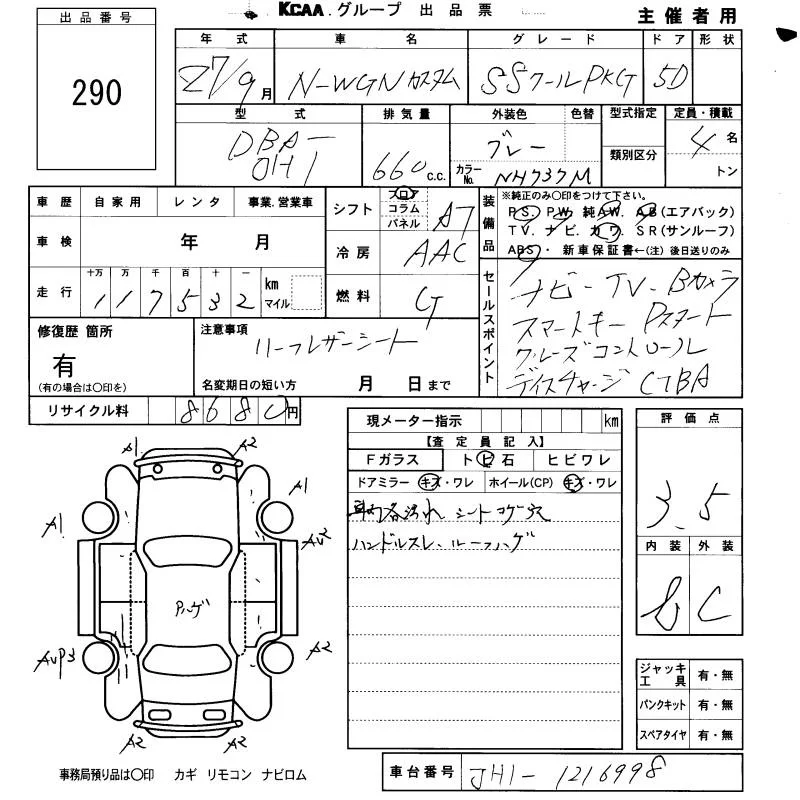 KCAA グループ 出品票
主催者用
出品番号
290
年式 車名 グレード ドア 形状
27/9月 N-WGNカスタム SSクールPKG 5D
型式 排気量 外装色 色替 型式指定 定員・積載
DBA- グレー 4名
JH1 660c.c. カラーNo. NH737M 類別区分 トン
車歴 自家用 レンタ 事業.営業車
車検 年 月
走行 十万 万 千 百 十 一
117532 km マイル
シフト フロア コラム パネル AT
冷房 AAC
燃料 G
装備品
※純正のみ○印をつけて下さい。
PS. PW. 純AW. AB(エアバック)
TV. ナビ. カワ. SR(サンルーフ)
ABS・新車保証書←(注)後日送りのみ
セールスポイント
ナビ・TV・Bカメラ
スマートキー Pスタート
クルーズコントロール
ディスチャージ CTBA
修復歴 箇所
有
(有の場合は○印を)
注意事項
ハーフレザーシート
名変期日の短い方 月 日まで
リサイクル料 8680円
現メーター指示 km
【査定員記入】
Fガラス トビ石 ヒビワレ
ドアミラー キズ・ワレ ホイール(CP) キズ・ワレ
車内各汚れ シートコゲ穴
ハンドルスレ・ルーフハゲ
評価点
3.5
内装 外装
C
ジャッキ工具 有・無
パンクキット 有・無
スペアタイヤ 有・無
A1 A2
A1 A1
AU2
Pハゲ
AUP3 A2
A2 A2
事務局預り品は○印 カギ リモコン ナビロム
車台番号 JH1-1216998